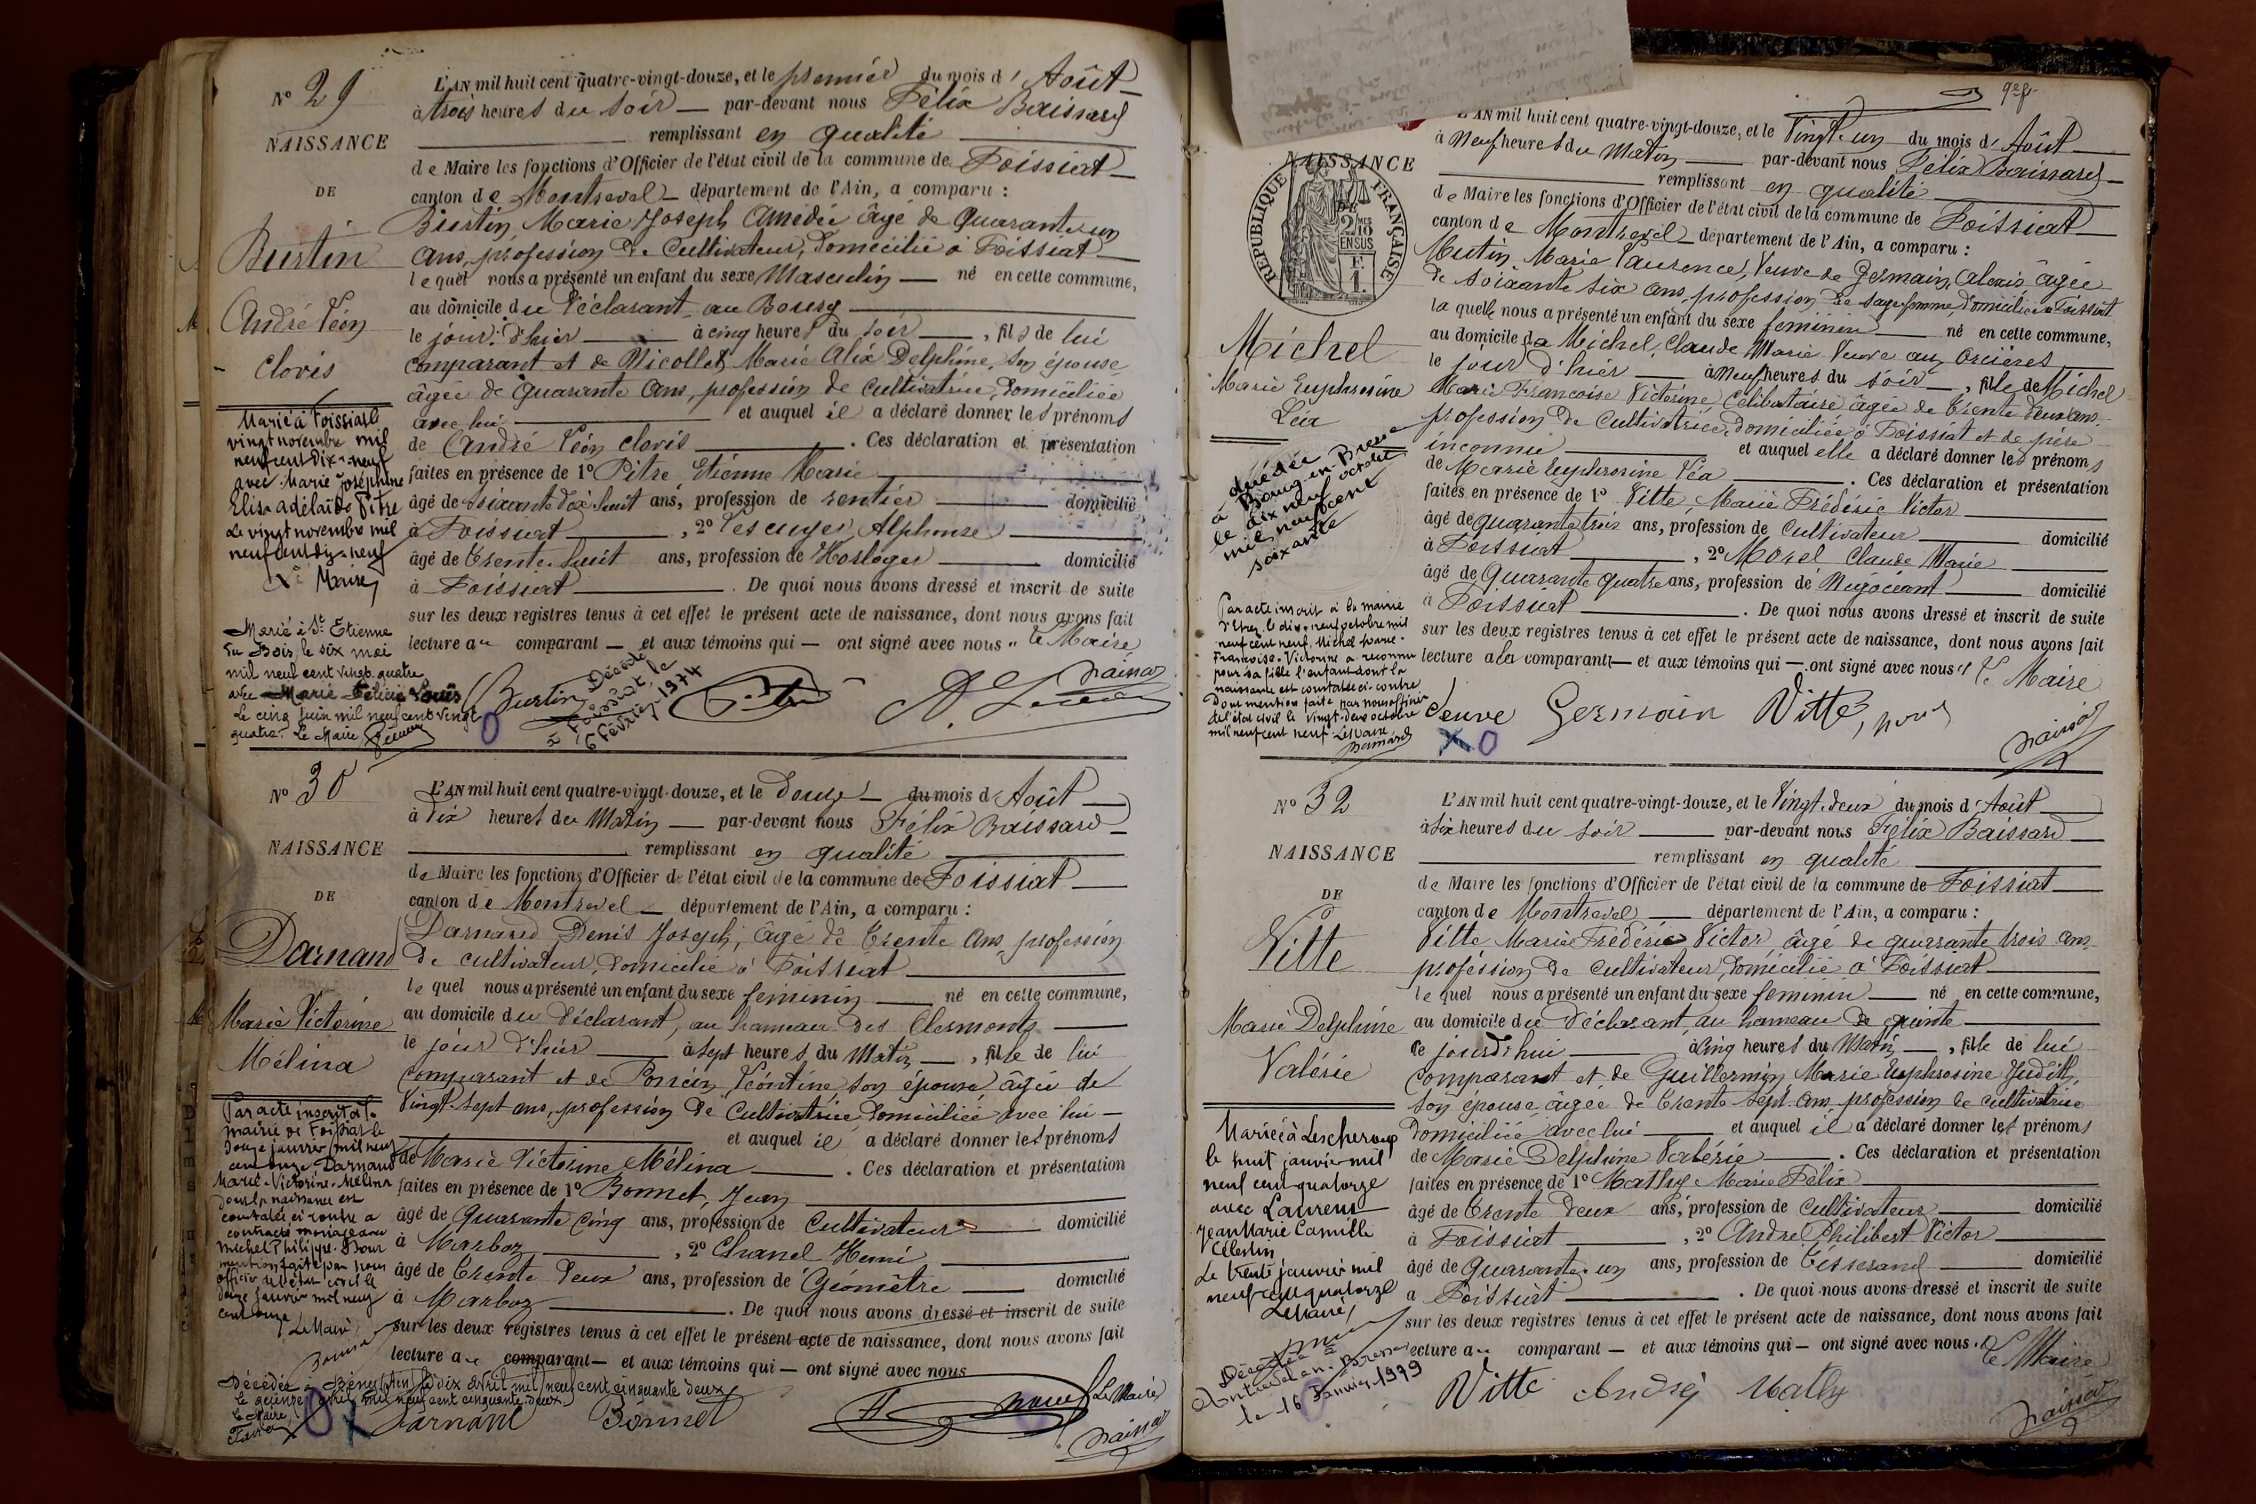 N° 29
NAISSANCE
DE
Burtin
André Léon
Clovis
Marié à Foissiat
vingt novembre mil
neuf cent dix-neuf
avec Marie Joséphine
Elisa Adélaïde Pitre
Le vingt novembre mil
neuf cent dix-neuf
Le Maire
Marié à St Etienne
du Bois le six mai
mil neuf cent vingt quatre
avec Marie Félicie
Le cinq juin mil neuf cent vingt
quatre. Le Maire
L'AN mil huit cent quatre-vingt-douze, et le premier du mois d'Août
à trois heures du soir par-devant nous Félix Baissard
remplissant en qualité
de Maire les fonctions d'Officier de l'état civil de la commune de Foissiat
canton de Montrevel département de l'Ain, a comparu :
Burtin, Marie Joseph Amédée âgé de Quarante un
ans, profession de Cultivateur, domicilié à Foissiat
lequel nous a présenté un enfant du sexe Masculin né en cette commune,
au domicile du déclarant au Bourg
le jour d'hier à cinq heures du soir, fils de lui
comparant et de Nicollet, Marie Alix Delphine, son épouse
âgée de quarante ans, profession de cultivatrice, domiciliée
avec lui et auquel il a déclaré donner les prénoms
de André Léon Clovis. Ces déclaration et présentation
faites en présence de 1° Pitre, Etienne Marie
âgé de soixante dix huit ans, profession de rentier domicilié
à Foissiat, 2° Lescuyer Alphonse
âgé de trente huit ans, profession de Horloger domicilié
à Foissiat. De quoi nous avons dressé et inscrit de suite
sur les deux registres tenus à cet effet le présent acte de naissance, dont nous avons fait
lecture au comparant et aux témoins qui ont signé avec nous. Le Maire
Burtin
Décédé
à Foissiat le
6 février 1974
Baissard
N° 30
NAISSANCE
DE
Darnand
Marie Victorine
Mélina
Par acte inscrit à la
mairie de Foissiat le
douze janvier mil neuf
cent onze Darnand
Marie-Victorine-Mélina
dont la naissance est
constatée ci-contre a
contracté mariage avec
Michel Philippe. Pour
mention faite par nous
officier de l'état civil le
douze janvier mil neuf
cent onze
Le Maire
Décédée à Bény (Ain) le dix avril mil neuf cent cinquante deux
le quinze avril mil neuf cent cinquante deux
Le Maire
L'AN mil huit cent quatre-vingt-douze, et le Douze du mois d'Août
à dix heures du Matin par-devant nous Félix Baissard
remplissant en qualité
de Maire les fonctions d'Officier de l'état civil de la commune de Foissiat
canton de Montrevel département de l'Ain, a comparu :
Darnand Denis Joseph, âgé de trente ans, profession
de cultivateur, domicilié à Foissiat
lequel nous a présenté un enfant du sexe féminin né en cette commune,
au domicile du déclarant, au hameau des Clermonts
le jour d'hier à sept heures du Matin, fille de lui
comparant et de Poncin, Léontine, son épouse, âgée de
vingt-sept ans, profession de Cultivatrice domiciliée avec lui
et auquel il a déclaré donner les prénoms
de Marie Victorine Mélina. Ces déclaration et présentation
faites en présence de 1° Bonnet, Jean
âgé de quarante cinq ans, profession de Cultivateur domicilié
à Marboz, 2° Chanel Henri
âgé de trente deux ans, profession de Géomètre domicilié
à Marboz. De quoi nous avons dressé et inscrit de suite
sur les deux registres tenus à cet effet le présent acte de naissance, dont nous avons fait
lecture au comparant et aux témoins qui ont signé avec nous
Le Maire
Darnand Bonnet
Baissard
NAISSANCE
DE
RÉPUBLIQUE FRANÇAISE
2/10 EN SUS
Michel
Marie Euphrosine
Léa
décédée
à Bourg-en-Bresse
le dix neuf octobre
mil neuf cent
soixante
Par acte inscrit à la mairie
le dix-neuf octobre mil
neuf cent neuf, Michel Marie-
Françoise-Victorine a reconnu
pour sa fille l'enfant dont la
naissance est constatée ci-contre
Dont mention faite par nous officier
de l'état civil le vingt-deux octobre
mil neuf cent neuf. Le Maire
L'AN mil huit cent quatre-vingt-douze, et le Vingt-un du mois d'Août
à Neuf heures du Matin par-devant nous Félix Baissard
remplissant en qualité
de Maire les fonctions d'Officier de l'état civil de la commune de Foissiat
canton de Montrevel département de l'Ain, a comparu :
Mutin, Marie Laurence, Veuve de Germain, Alexis âgée
de soixante six ans, profession de sage femme, domiciliée à Foissiat
laquelle nous a présenté un enfant du sexe féminin né en cette commune,
au domicile de Michel, Claude Marie Veuve aux Orcières
le jour d'hier à Neuf heures du soir, fille de Michel
Marie Françoise Victorine, Célibataire âgée de trente deux ans,
profession de Cultivatrice, domiciliée à Foissiat et de père
inconnu et auquel elle a déclaré donner les prénoms
de Marie Euphrosine Léa. Ces déclaration et présentation
faites en présence de 1° Vitte, Marie Frédéric Victor
âgé de quarante trois ans, profession de Cultivateur domicilié
à Foissiat, 2° Morel Claude Marie
âgé de Quarante quatre ans, profession de Négociant domicilié
à Foissiat. De quoi nous avons dressé et inscrit de suite
sur les deux registres tenus à cet effet le présent acte de naissance, dont nous avons fait
lecture à la comparante et aux témoins qui ont signé avec nous. Le Maire
Veuve Germain Vitte
Baissard
N° 32
NAISSANCE
DE
Vitte
Marie Delphine
Valérie
Mariée à Lescheroux
le huit janvier mil
neuf cent quatorze
avec Laurent
Jean Marie Camille
Célestin
Le trente janvier mil
neuf cent quatorze
Le Maire,
Décédée à
Montrevel-en-Bresse
le 16 Janvier 1979
L'AN mil huit cent quatre-vingt-douze, et le Vingt-deux du mois d'Août
à six heures du soir par-devant nous Félix Baissard
remplissant en qualité
de Maire les fonctions d'Officier de l'état civil de la commune de Foissiat
canton de Montrevel département de l'Ain, a comparu :
Vitte Marie Frédéric Victor âgé de quarante trois ans
profession de Cultivateur, domicilié à Foissiat
lequel nous a présenté un enfant du sexe féminin né en cette commune,
au domicile du déclarant au hameau de
ce jourd'hui à cinq heures du Matin, fille de lui
comparant et de Guillermin, Marie Euphrosine Judith,
son épouse, âgée de trente sept ans, profession de cultivatrice
domiciliée avec lui et auquel il a déclaré donner les prénoms
de Marie Delphine Valérie. Ces déclaration et présentation
faites en présence de 1° Mathy Marie Félix
âgé de trente deux ans, profession de Cultivateur domicilié
à Foissiat, 2° André Philibert Victor
âgé de Quarante-un ans, profession de Tisserand domicilié
à Foissiat. De quoi nous avons dressé et inscrit de suite
sur les deux registres tenus à cet effet le présent acte de naissance, dont nous avons fait
lecture au comparant et aux témoins qui ont signé avec nous. Le Maire
Vitte André Mathy
Baissard